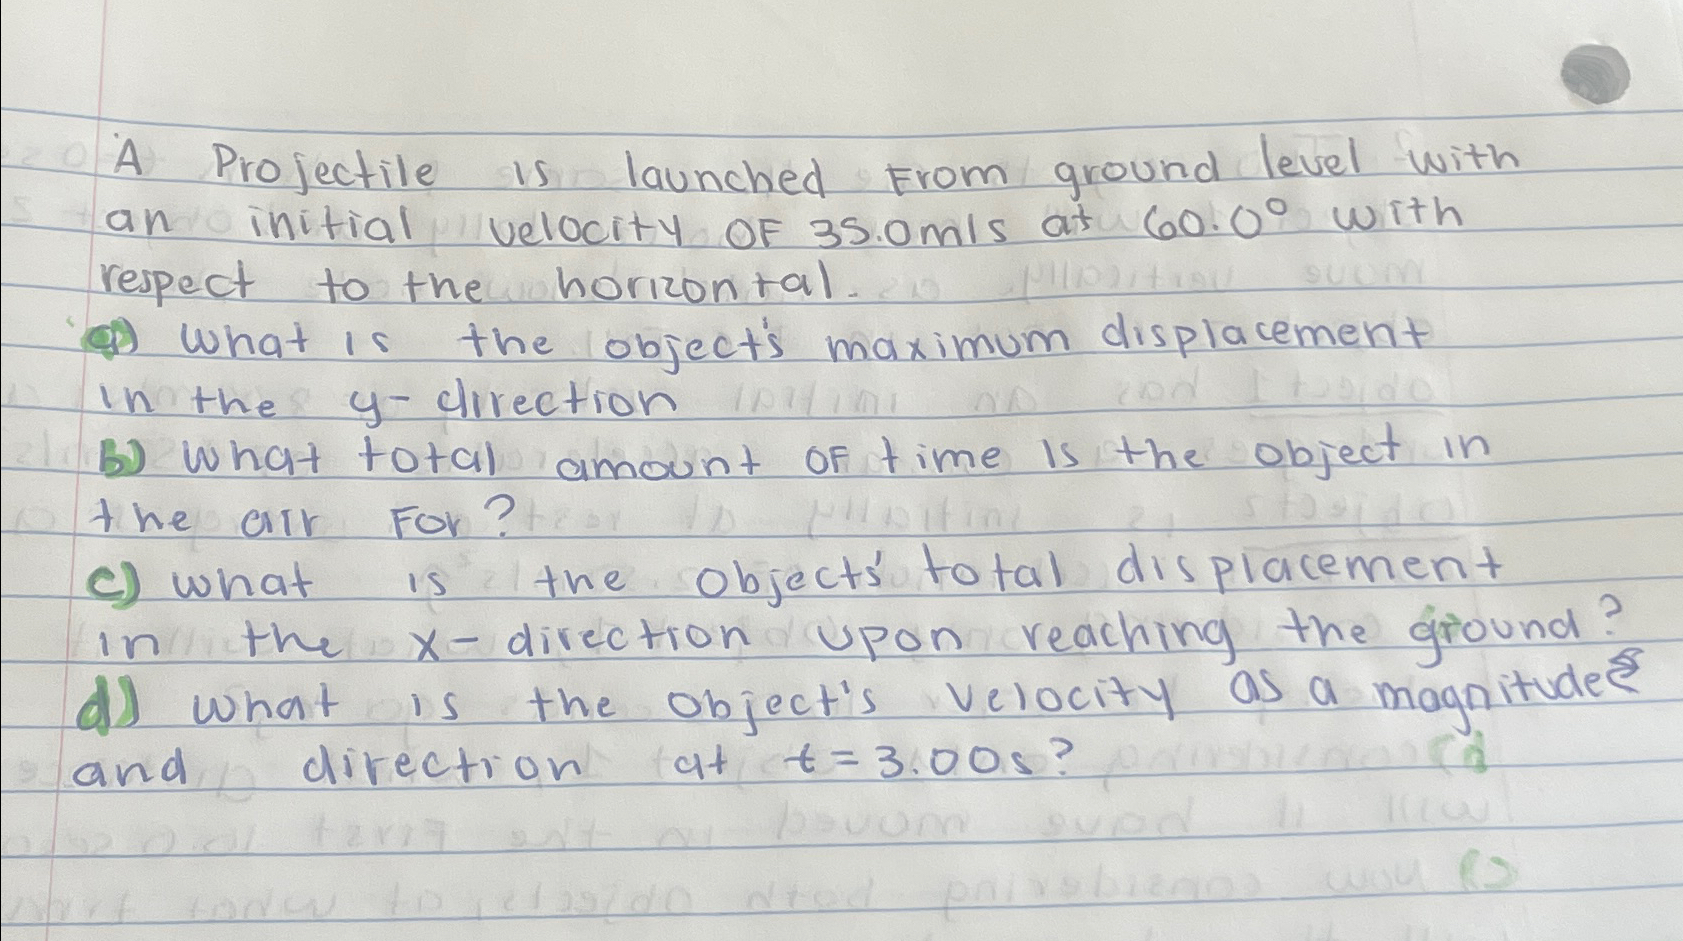 A Projectile is launched From ground level with
an initial velocity OF 35.0m/s at 60.0° with
respect to the horizontal.
a) what is the object's maximum displacement
in the y-direction
b) what total amount OF time is the object in
the air For?
c) what is the objects' total displacement
in the x-direction upon reaching the ground?
d) what is the object's velocity as a magnitude
and direction at t = 3.00s?